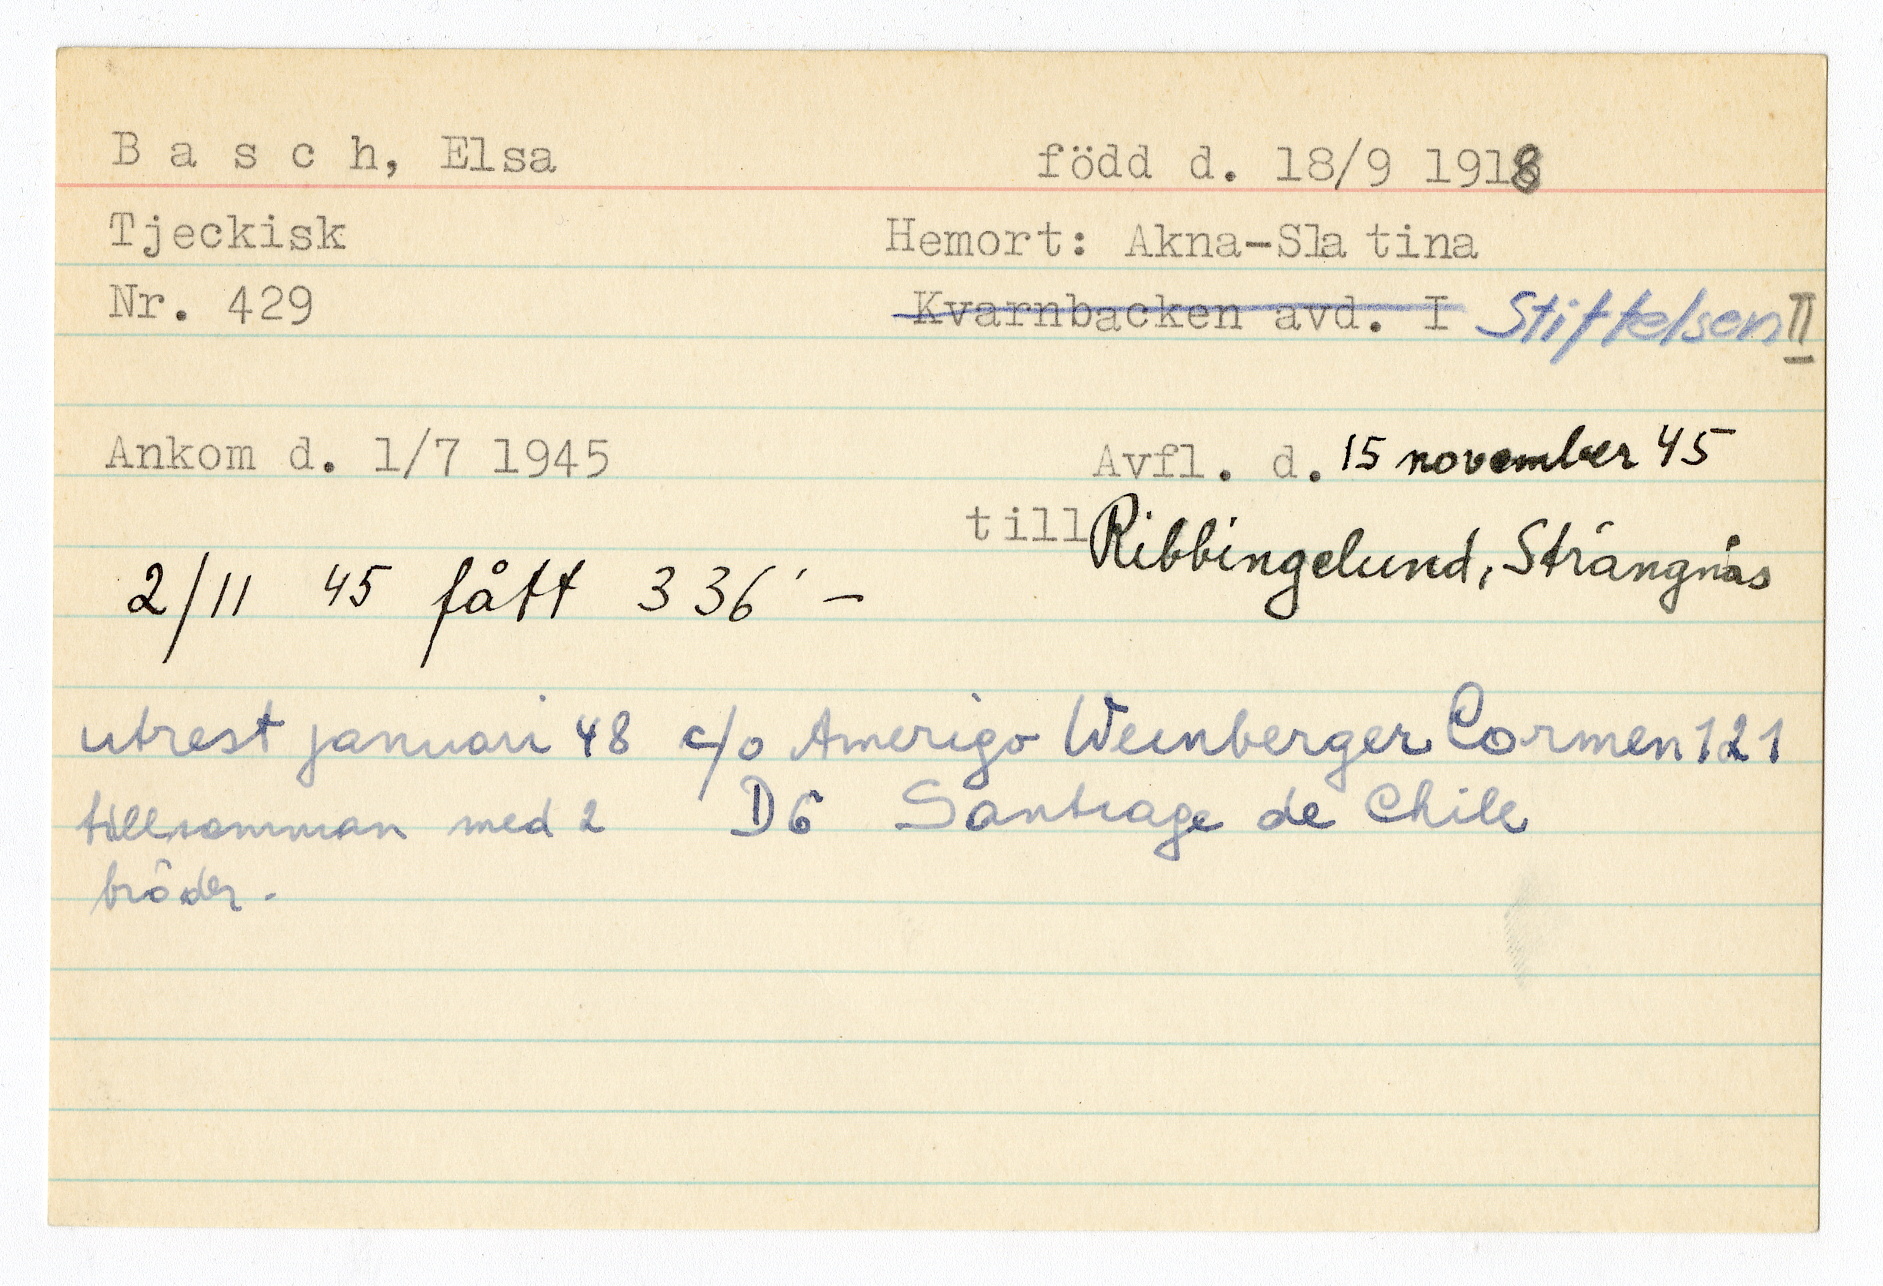 B a s c h, Elsa född d. 18/9 1918
Tjeckisk Hemort: Akna-Slatina
Nr. 429 Kvarnbacken avd. I Stiftelsen II
Ankom d. 1/7 1945 Avfl. d. 15 november 45
till Ribbingelund, Strängnäs
2/11 45 fått 336'-
utrest januari 48 c/o Amerigo Weinberger Cormen 121
tillsamman med 2 D6 Santiage de Chile
bröder.